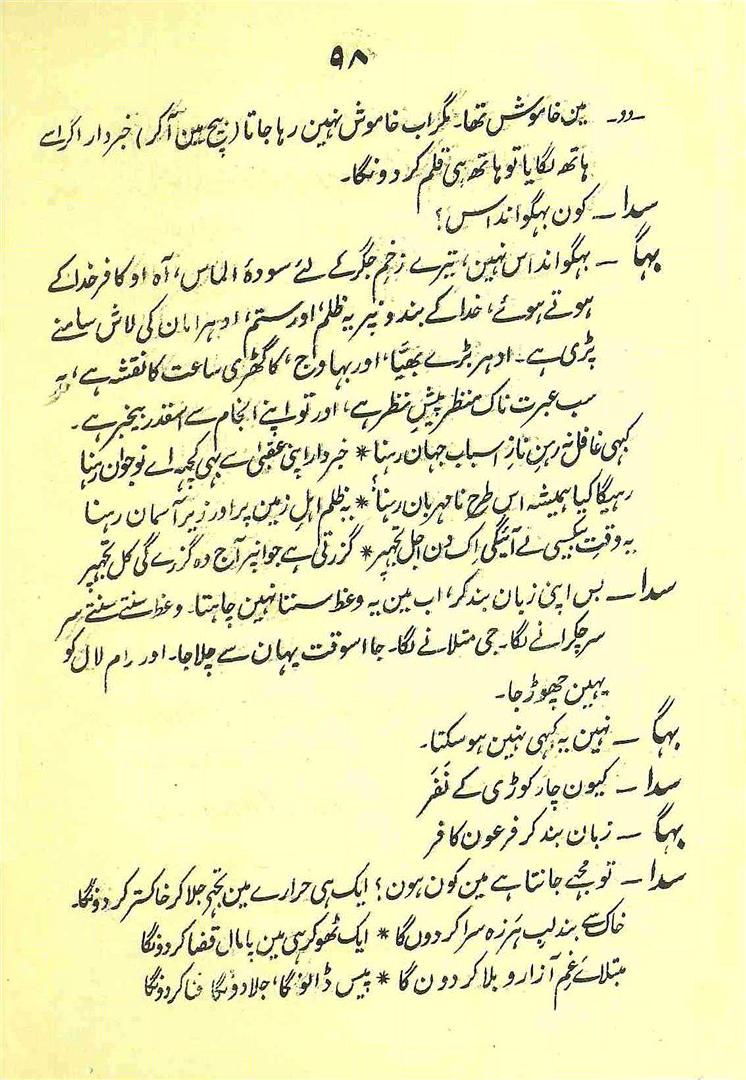 ۹۸
-دو- مین خاموش تھا۔ مگر اب خاموش نہین رہا جاتا (بیچ مین آکر) خبردار اگر اسے
ہاتھ لگایا تو ہاتھ ہی قلم کر دونگا۔
سدا — کون بہگوانداس؟
بہگا — بہگوانداس نہین، تیرے زخم جگر کے لئے سودۂ الماس، آہ او کافر خدا کے
ہوتے ہوئے، خدا کے بندونپر یہ ظلم، اور ستم، ادہر امان کی لاش سامنے
پڑی ہے۔ ادہر بڑے بھیّا، اور بہاوج، کا گھڑی ساعت کا نقشہ ہے، یہ
سب عبرت ناک منظر پیشِ نظر ہے، اور تو اپنے انجام سے اسقدر بیخبر ہے۔
کبہی غافل نہ رہنِ نازِ اسبابِ جہان رہنا * خبردار اپنی عقبیٰ سے بہی کچہہ اے نوجوان رہنا
رہیگا کیا ہمیشہ اس طرح نامہربان رہنا * یہ ظلم اہلِ زمین پر اور زیرِ آسمان رہنا
یہ وقتِ بیکسی لے آئیگی اِک دن اجل تجہپر * گزرتی ہے جو انپر آج وہ گزرے گی کل تجہپر
سدا — بس اپنی زبان بند کر، اب مین یہ وعظ سننا نہین چاہتا۔ وعظ سنتے سنتے سر
سر چکرانے لگا۔ جی متلانے لگا۔ جا اسوقت یہان سے چلا جا۔ اور رام لال کو
یہین چھوڑ جا۔
بہگا — نہین یہ کبہی نہین ہو سکتا۔
سدا — کیون چار کوڑی کے نَفَر
بہگا — زبان بند کر فرعون کافر
سدا — تو مجہے جانتا ہے مین کون ہون؛ ایک ہی حرارے مین تجہے جلا کر خاکستر کر دونگا۔
خاک سے بند لبِ ہَرزہ سرا کردوں گا * ایک ٹھوکر ہی مین پامالِ قضا کر دونگا
مبتلائے غمِ آزار و بلا کر دون گا * پیس ڈالونگا، جلا دونگا فنا کر دونگا